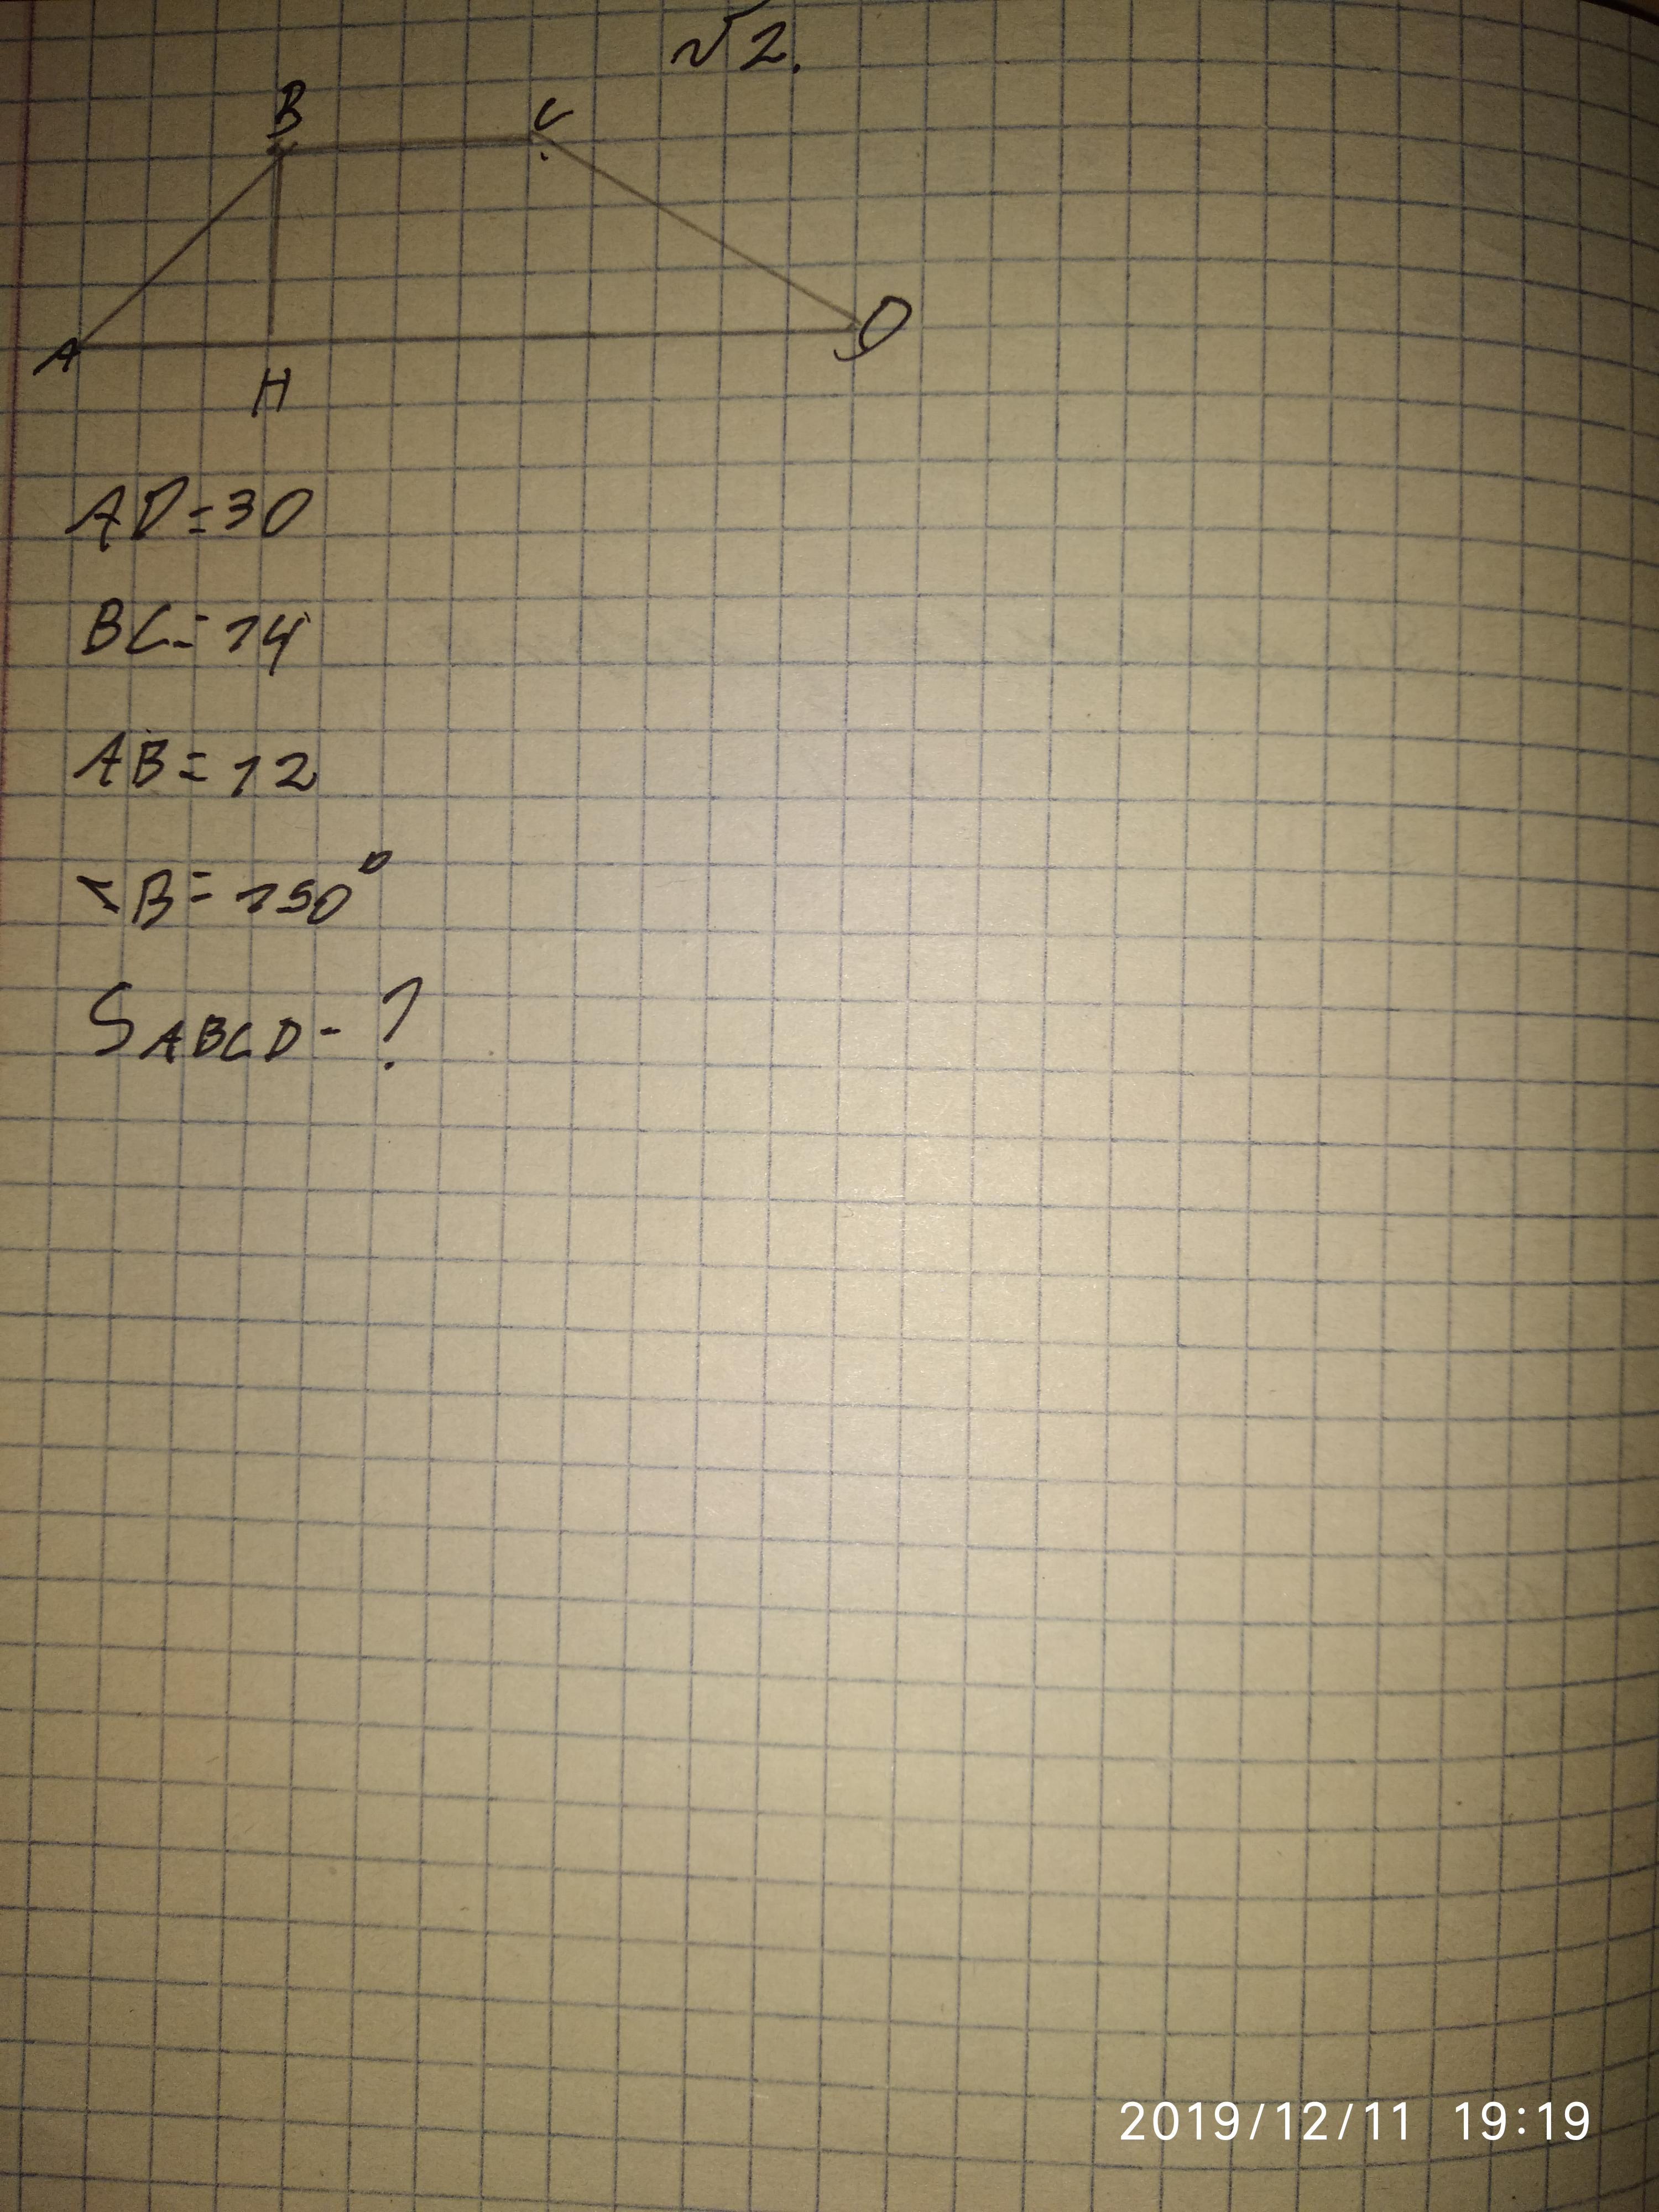 №2.
B C
A H D
AD=30
BC=14
AB=12
∠B=150°
SABCD-?
2019/12/11 19:19